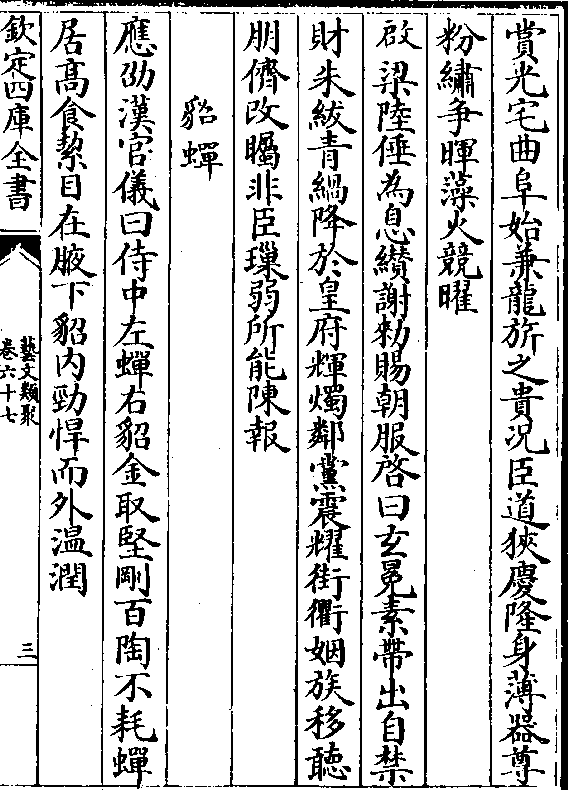 賞光宅曲阜始兼龍旂之貴況臣道狹慶隆身薄器尊
粉繡争暉藻火競曜
啟 梁陸倕為息纘謝勑賜朝服啓曰玄冕素帶出自禁
財朱紱青緺降於皇府輝燭鄰黨震耀街衢姻族移聽
朋儕改矚非臣璅弱所能陳報
貂蟬
應劭漢官儀曰侍中左蟬右貂金取堅剛百陶不耗蟬
居髙食潔目在腋下貂内勁悍而外温潤
欽定四庫全書
藝文類聚
卷六十七
三